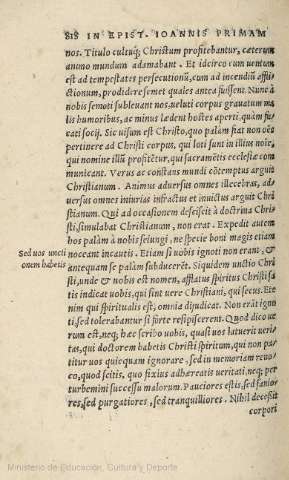 SIS IN EPIST. IOANNIS PRIMAM
nos. Titulo cultuq́; Christum profitebantur, cæterum
animo mundum adamabant. Et idcirco cum uentum
est ad tempestates persecutionũ, cum ad incendiũ affli
ctionum, prodidere semet quales antea fuissent. Nunc à
nobis semoti subleuant nos, ueluti corpus grauatum ma
lis humoribus, ac minus lædent hostes aperti, quàm fu
cati socij. Sic uisum est Christo, quo palàm fiat non oẽs
pertinere ad Christi corpus, qui loti sunt in illius noĩe,
qui nomine illũ profitẽtur, qui sacramẽtis ecclesiæ com
municant. Verus ac constans mundi cõtemptus arguit
Christianum. Animus aduersus omnes illecebras, ad
uersus omnes iniurias infractus et inuictus arguit Chri
stianum. Qui ad occasionem desciscit à doctrina Chri
sti, simulabat Christianum, non erat. Expedit autem
hos palàm à nobis seiungi, ne specie boni magis etiam
Sed uos uncti
onem habetis
noceant incautis. Etiam si uobis ignoti non erant, &
antequam se palàm subducerẽt. Siquidem unctio Chri
sti, unde & uobis est nomen, afflatus spiritus Christi sa
tis indicat uobis, qui sint uere Christiani, qui secus. Ete
nim qui spiritualis est, omnia dijudicat. Non erat igno
ti, sed tolerabantur si forte resipiscerent. Quod dico ue
rum est, neq; hæc scribo uobis, quasi uos latuerit ueri
tas, qui doctorem habetis Christi spiritum, qui non pa
titur uos quicquam ignorare, sed in memoriam reuo
co, quod scitis, quo fixius adhæreatis ueritati, neq; per
turbemini successu malorum. Pauciores estis, sed sanio
res, sed purgatiores, sed tranquilliores. Nihil decessit
corpori
Ministerio de Educación, Cultura y Deporte